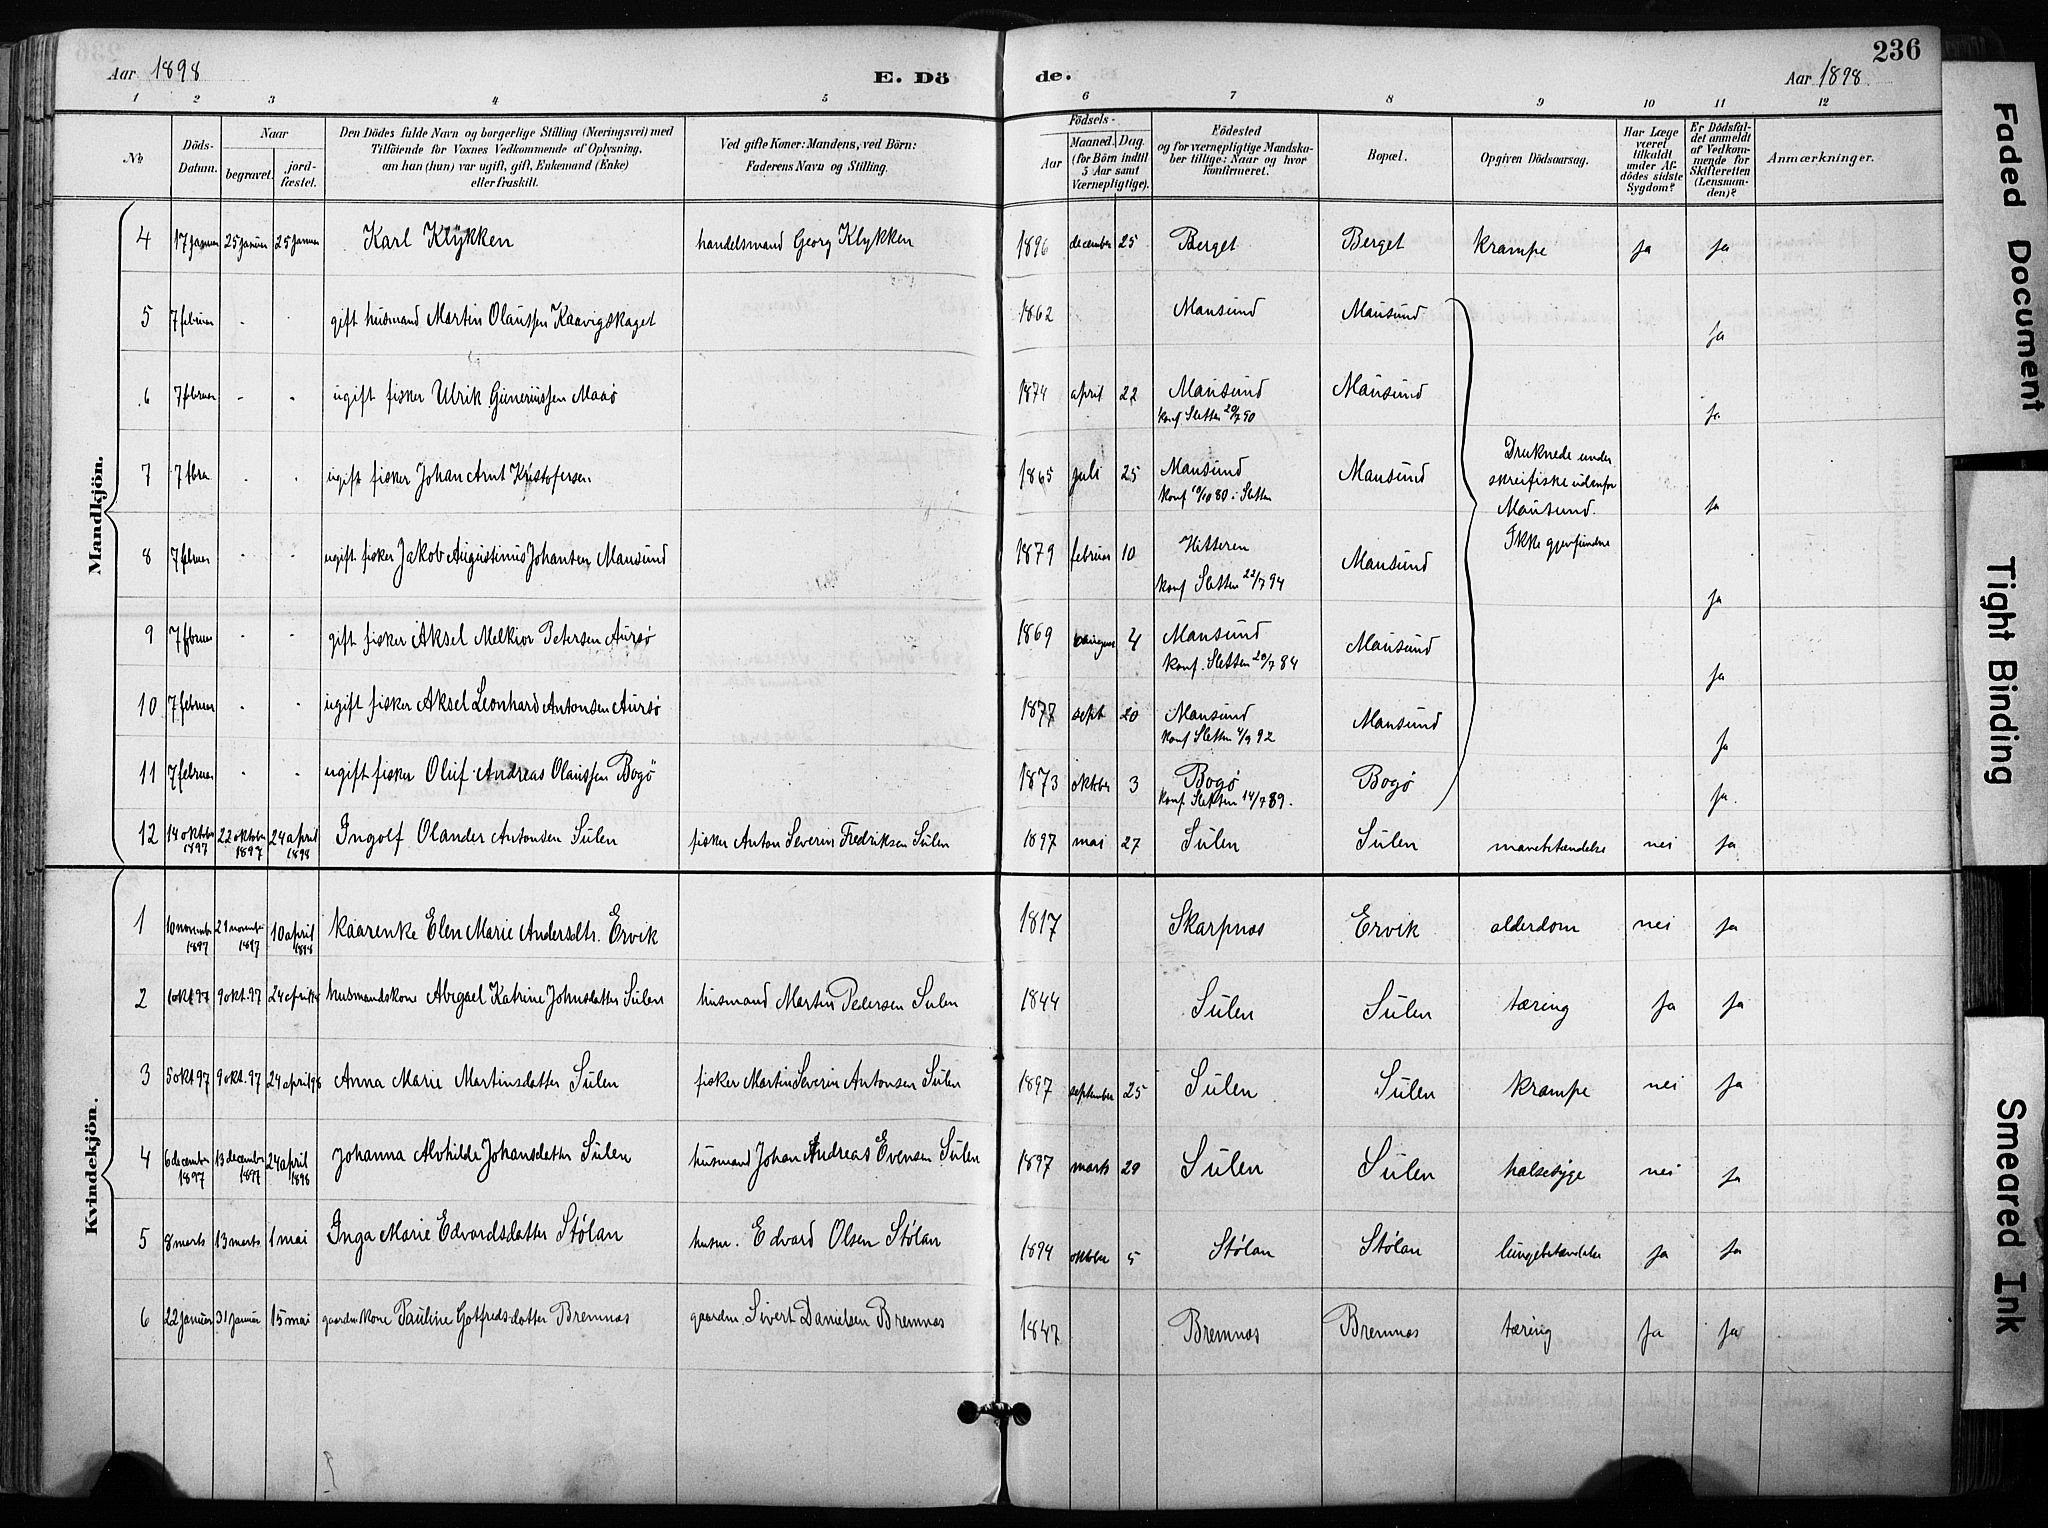 236
Aar 1898
E. Dö
de.
Aar 1898.
1 2 3 4 5 6 7 8 9 10 11 12
No
Döds-Datum.
Naar
begravet.
jordfæstet.
Den Dödes fulde Navn og borgerlige Stilling (Næringsvei) med
Tilföiende for Voxnes Vedkommende af Oplysning,
om han (hun) var ugift, gift, Enkemand (Enke)
eller fraskilt.
Ved gifte Koner: Mandens, ved Börn:
Faderens Navn og Stilling.
Födsels-
Aar
Maaned. Dag.
(for Börn indtil
5 Aar samt
Værnepligtige).
Födested
og for værnepligtige Mandskaber tillige: Naar og hvor
konfirmeret.
Bopæl.
Opgiven Dödsaarsag.
Har Læge været tilkaldt under Afdödes sidste Sygdom?
Er Dödsfaldet anmeldt af Vedkommende for Skifteretten (Lensmanden)?
Anmærkninger.
Mandkjön.
4 17 januar 25 januar 25 januar Karl Klykken handelsmand Georg Klykken 1896 december 25 Berget Berget krampe ja ja
5 7 februar - - gift husmand Martin Olaussen Kaavigskaget 1862 Mausund Mausund ja
6 7 februar - - ugift fisker Ulrik Guneriussen Maaø 1874 april 22 Mausund Mausund ja
konf. Sletten 20/7 90
7 7 fbra - - ugift fisker Johan Arnt Kristofersen 1865 juli 25 Mausund Mausund ja
konf 10/10 80 i Sletten
Druknede under
skreifiske udenfor
Mausund.
Ikke gjenfundne
8 7 februar - - ugift fisker Jakob Augustinus Johansen Mausund 1879 februar 10 Hitteren Mausund ja
konf Sletten 22/7 94
9 7 februar - - gift fisker Aksel Melkior Petersen Aursø 1869 4 Mausund Mausund ja
konf. Sletten 20/7 84
10 7 februar - - ugift fisker Aksel Leonhard Antonsen Aursø 1877 sept 20 Mausund Mausund ja
konf Sletten 4/9 92
11 7 februar - - ugift fisker Oluf Andreas Olaussen Bogø 1873 oktober 3 Bogø Bogø ja.
konf Sletten 14/7 89.
12 14 oktober 1897 22 oktober 1897 24 april 1898 Ingolf Olander Antonsen Sulen fisker Anton Severin Fredriksen Sulen 1897 mai 27 Sulen Sulen mavebetændelse nei ja
Kvindekjön.
1 10 november 1897 21 november 1897 10 april 1898 kaarenke Elen Marie Andersdtr. Ervik 1817 Skarpnes Ervik alderdom nei ja
2 1 okt 97 9 okt. 97 24 april 98 husmandskone Abigael Katrine Johnsdatter Sulen husmand Martin Pedersen Sulen 1844 Sulen Sulen tæring ja ja
3 5 okt 97 9 okt. 97 24 april 98 Anna Marie Martinsdatter Sulen fisker Martin Severin Antonsen Sulen 1897 september 25 Sulen Sulen krampe nei ja
4 6 december 1897 13 december 1897 24 april 1898 Johanna Alvhilde Johansdatter Sulen husmand Johan Andreas Evensen Sulen 1897 marts 29 Sulen Sulen halsesyge nei ja
5 8 marts 13 marts 1 mai Inga Marie Edvardsdatter Stølan husm. Edvard Olsen Stølan 1894 oktober 5 Stølan Stølan lungebetændelse ja ja
6 22 januar 31 januar 15 mai gaardmkone Pauline Gotfredsdatter Bremnes gaardm. Sivert Danielsen Bremnes 1847 Bremnes Bremnes tæring ja ja
Faded Document
Tight Binding
Smeared Ink